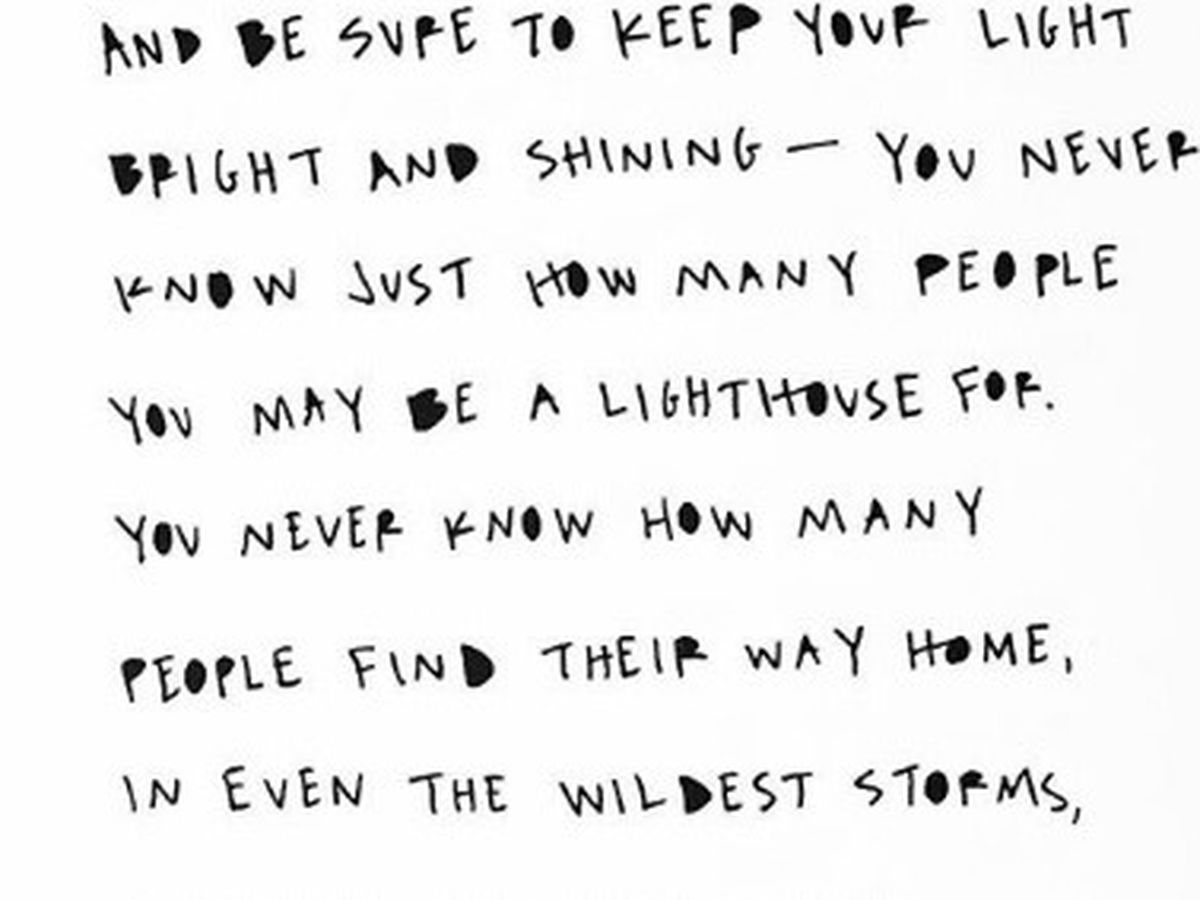 AND BE SURE TO KEEP YOUR LIGHT
BRIGHT AND SHINING — YOU NEVER
KNOW JUST HOW MANY PEOPLE
YOU MAY BE A LIGHTHOUSE FOR.
YOU NEVER KNOW HOW MANY
PEOPLE FIND THEIR WAY HOME,
IN EVEN THE WILDEST STORMS,